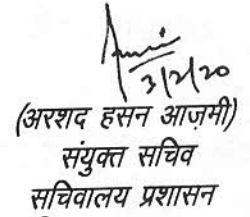 3/2/20
(अरशद हसन आज़मी)
संयुक्त सचिव
सचिवालय प्रशासन